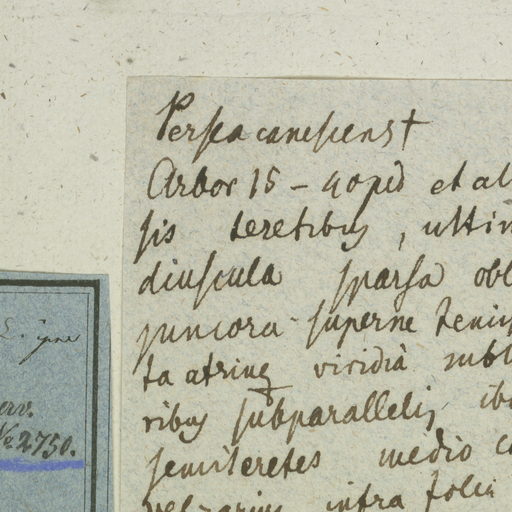 Persea canescens †
Arbor 15-40 ped et al
sis teretibus, ultim
diuscula sparsa obl
juniora superne tenu
ta atrinq viridia subt
ribus subparallelis,
semiteretes medio
infra folii
erv.
No. 2750.